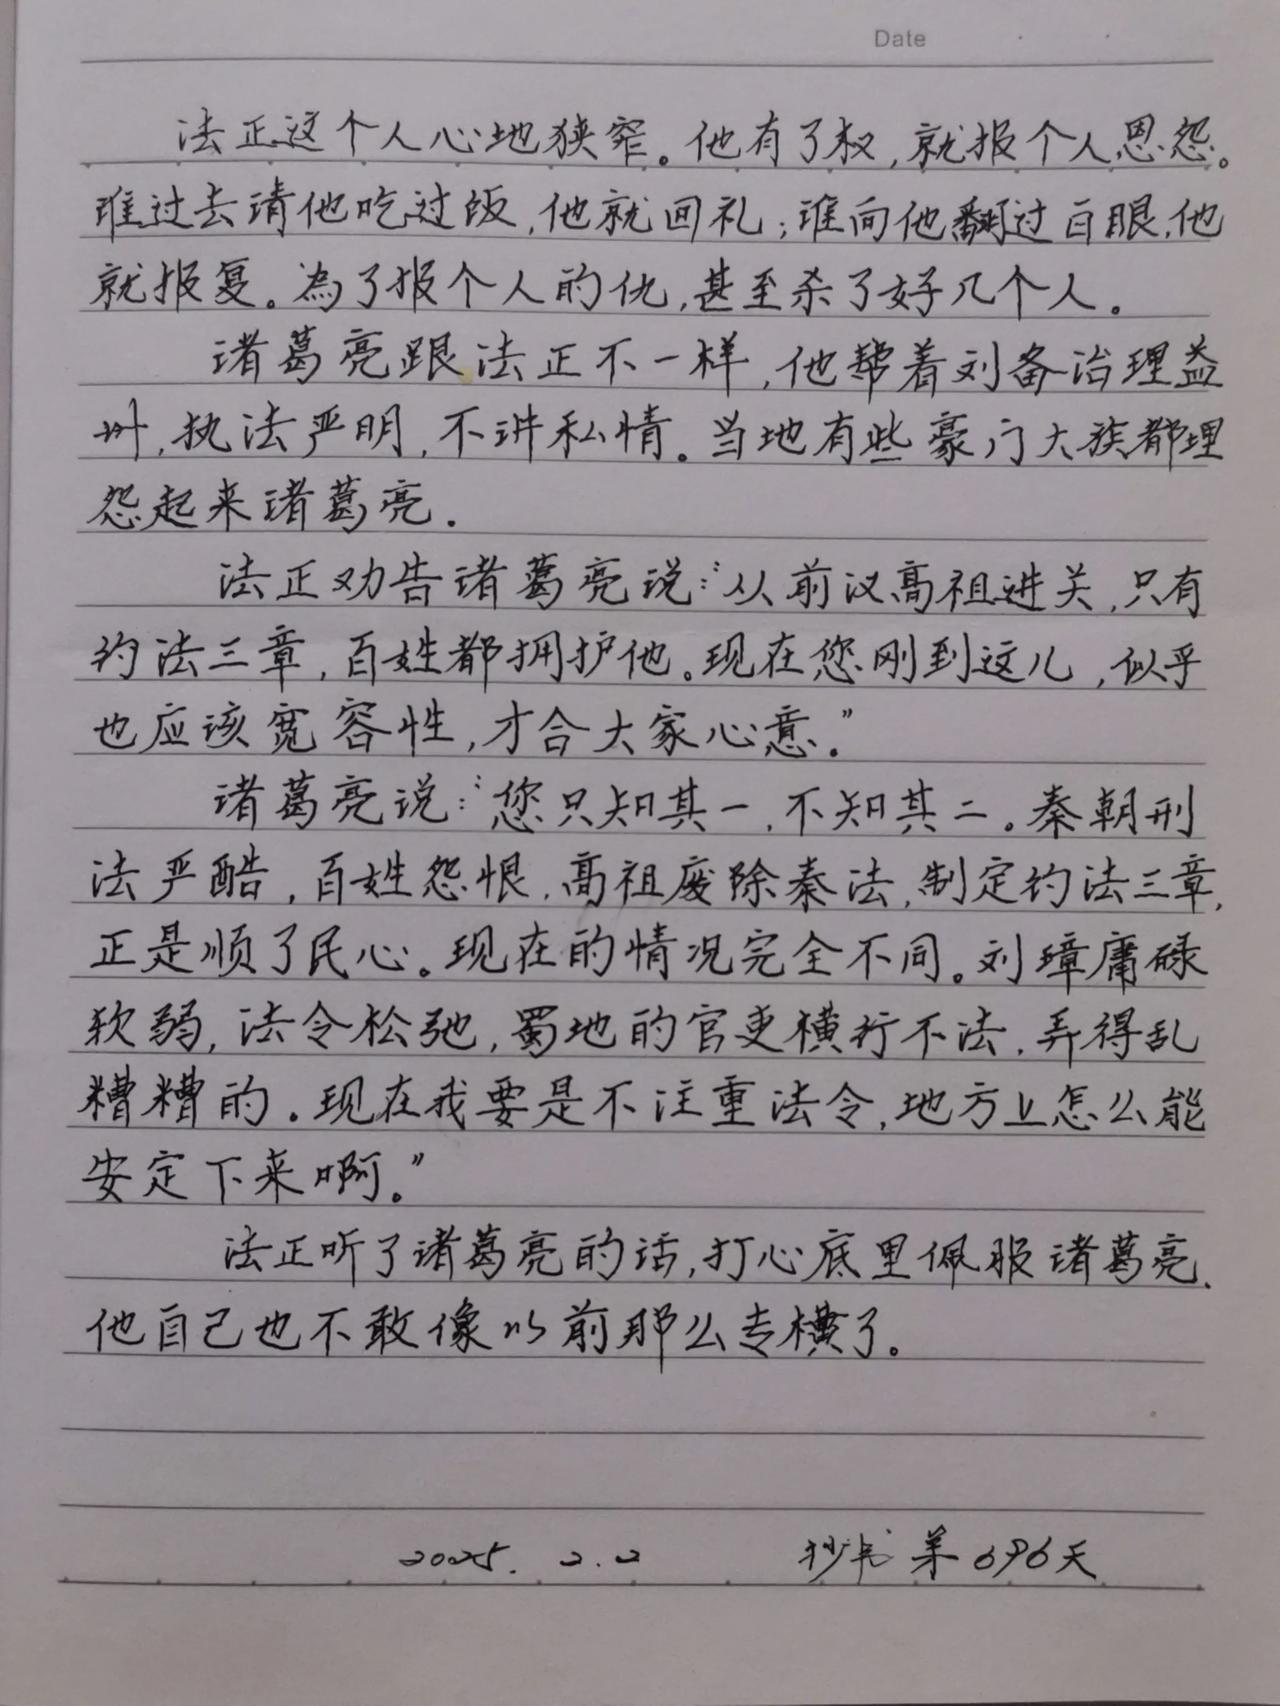 Date
法正这个人心地狭窄。他有了权,就报个人恩怨。
谁过去请他吃过饭,他就回礼;谁向他翻过白眼,他
就报复。為了报个人的仇,甚至杀了好几个人。
诸葛亮跟法正不一样,他帮着刘备治理益
州,执法严明,不讲私情。当地有些豪门大族都埋
怨起来诸葛亮.
法正劝告诸葛亮说:“从前汉高祖进关,只有
约法三章,百姓都拥护他。现在您刚到这儿,似乎
也应该宽容性,才合大家心意。”
诸葛亮说:“您只知其一,不知其二。秦朝刑
法严酷,百姓怨恨,高祖废除秦法,制定约法三章,
正是顺了民心。现在的情况完全不同。刘璋庸碌
软弱,法令松弛,蜀地的官吏横行不法,弄得乱
糟糟的。现在我要是不注重法令,地方上怎么能
安定下来啊。”
法正听了诸葛亮的话,打心底里佩服诸葛亮.
他自己也不敢像以前那么专横了。
2025. 2.2 抄书第696天